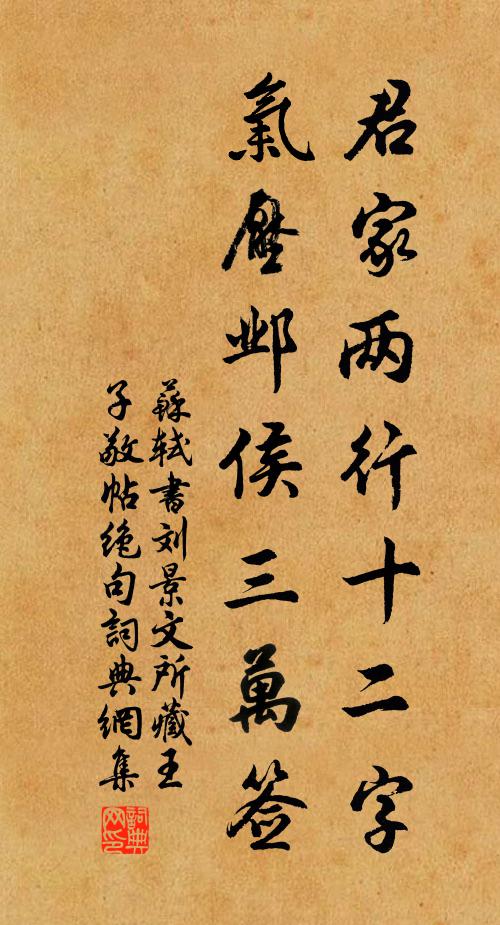 君家两行十二字
氣壓邺侯三萬签
蘇轼書刘景文所藏王
子敬帖绝句詞典網集
詞典网印